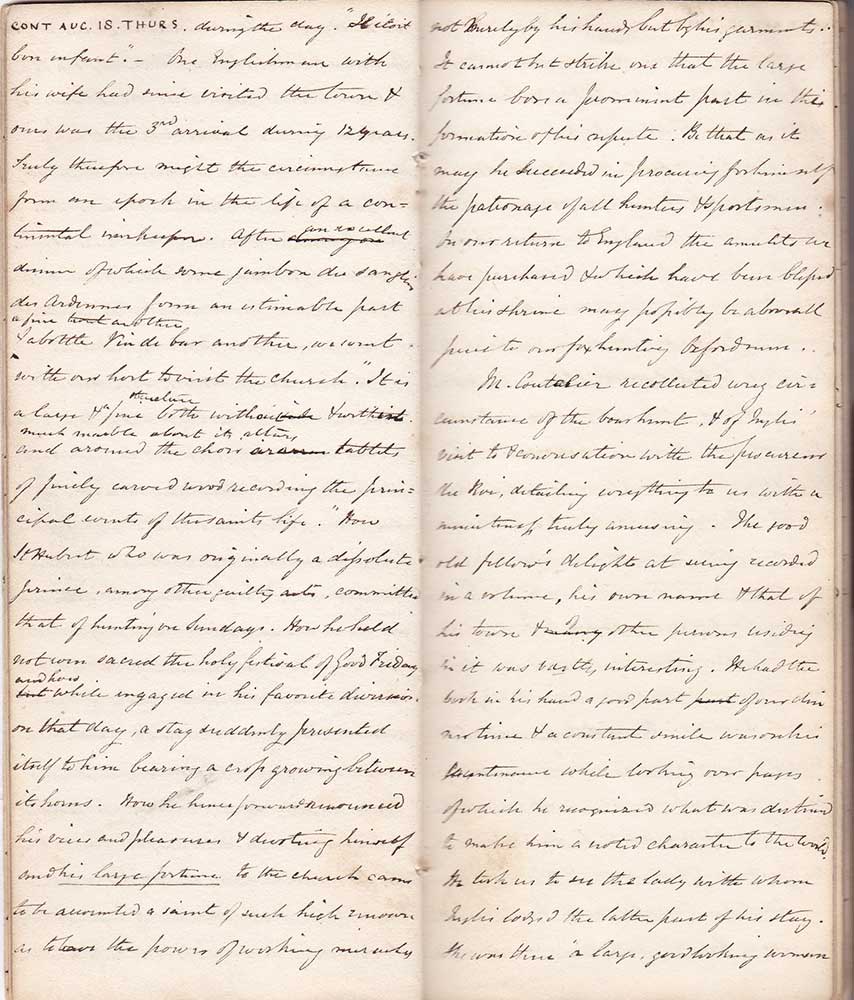 CONT AUG. 18. THURS. during the day. "Il était
bon enfant". – One Englishman with
his wife had since visited the town &
ours was the 3rd arrival during 12 years.
Truly therefore might the circumstance
form an epoch in the life of a con=
tinental innkeeper. After an excellent
dinner of which some jambon du sanglier
des Ardennes form an estimable part
a fine trout another
& a bottle Vin de bar another, we went
with our host to visit the church. "It is
a large & fine structure both within & without
much marble about its altars
and around the choir are tablets
of finely carved wood recording the prin=
cipal events of the saints life." How
St Hubert who was originally a dissolute
prince, among other guilty acts, committed
that of hunting on Sundays. How he held
not even sacred the holy festival of Good Friday
and how
but while engaged in his favorite diversion
on that day, a stag suddenly presented
itself to him bearing a cross growing between
its horns. How he henceforward renounced
his vices and pleasures & devoting himself
and his large fortune to the church came
to be accounted a saint of such high renown
as to have the powers of working miracles
not merely by his hands but by his garments..
It cannot but strike one that the large
fortune bore a prominent part in this
formation of his repute. Be that as it
may he succeeded in procuring for himself
the patronage of all hunters & sportsmen.
On our return to England the amulets we
have purchased & which have been blessed
at his shrine may possibly be above all
price to our foxhunting
M. recollected every cir=
cumstance of the boar hunt, & of Inglis'
visit to & conversation with the procureur
du Roi, detailing everything to us with a
minuteness truly amusing. The good
old fellow's delight at seeing recorded
in a volume, his own name & that of
his town & of many other persons residing
in it was vastly interesting. He had the
book in his hand a good part part of our din
nertime & a constant smile was on his
countenance while looking over pages
of which he recognized what was destined
to make him a noted character to the world.
He took us to see the lady with whom
Inglis lodged the latter part of his stay.
She was then "a large, good looking woman